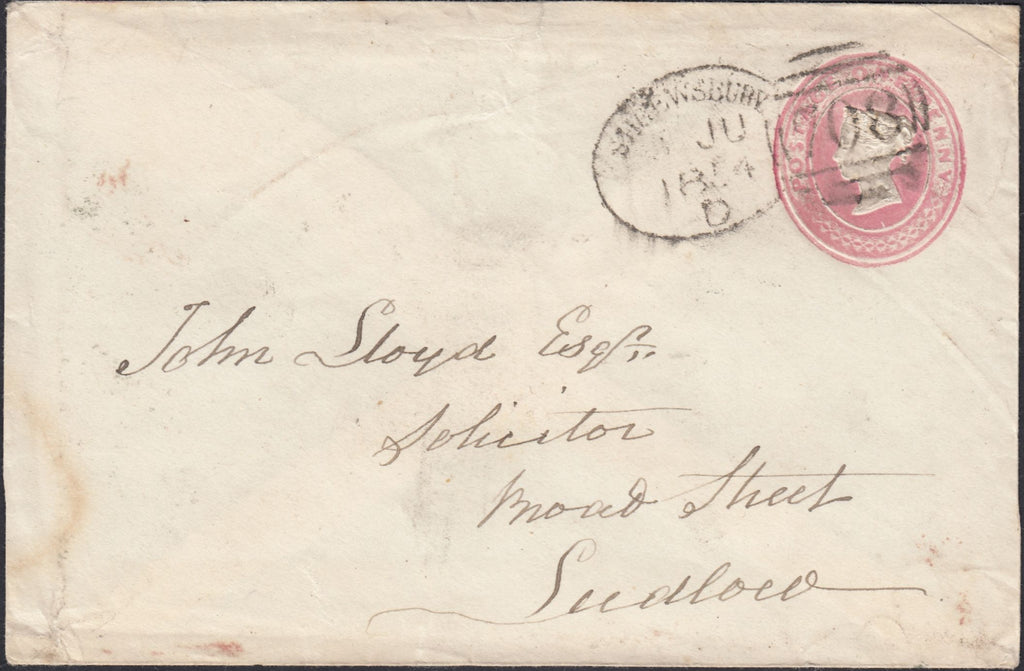 SHREWSBURY
JU
1854
D
POSTAGE ONE PENNY
708
John Lloyd Esqr.
Solicitor
Broad Street
Ludlow